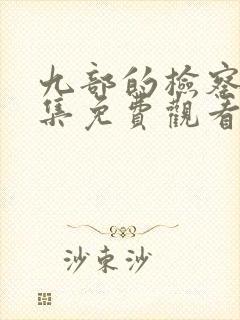 九部的檢察
集免費觀看
沙束沙